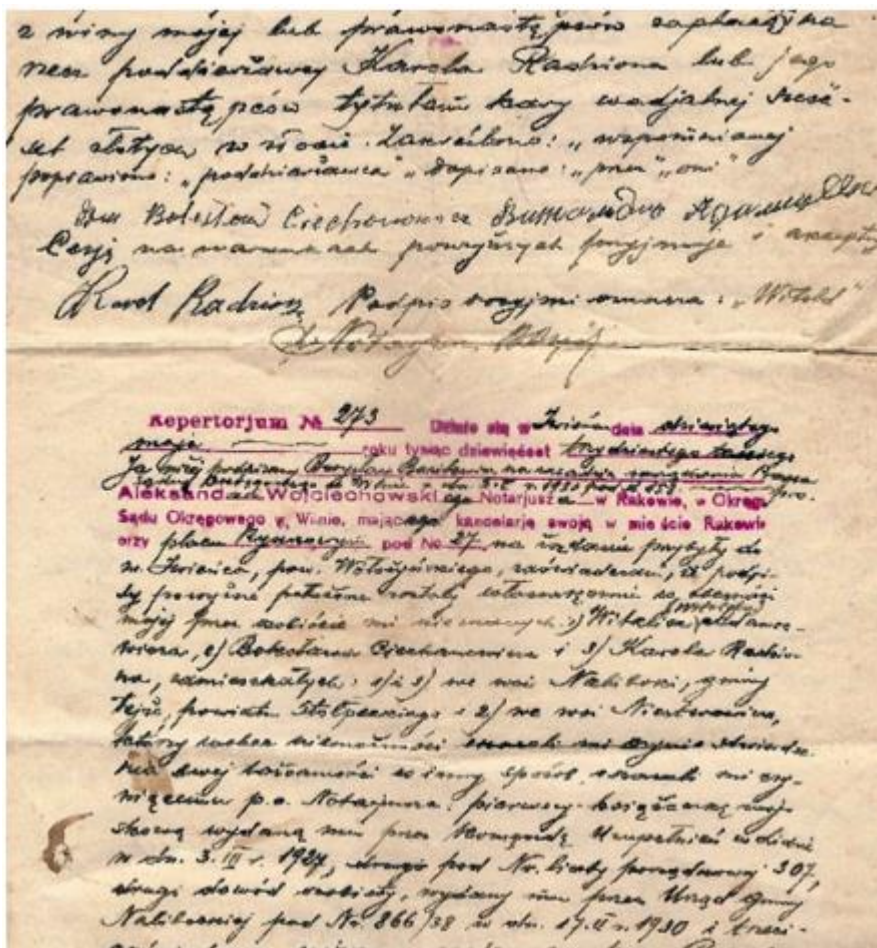 z winy mojej lub prawonastępców zapłacić na
rzecz poddzierżawcy Karola Radziona lub jego
prawonastępców tytułem kary wadjalnej sześć-
set złotych w złocie. Zakreślono: „wspomnianej
poprawiono: „poddzierżawca" Dopisano: „przez" „oni"
Bolesław Ciechanowicz
Cesję na warunkach powyższych przyjmuję i akceptuję
Karol Radzion Podpis oznacza: „Witold"
Notarjusz
Repertorjum № 273 Działo się w Iwieńcu dnia dziewiątego
maja roku tysiąc dziewięćset trzydziestego
Ja niżej podpisany na zasadzie
Sądu Okręgowego w Wilnie z dn.
Aleksandra Wojciechowskiego Notarjusza w Rakowie, w Okręgu
Sądu Okręgowego w Wilnie, mającego kancelarję swoją w mieście Rakowie
przy placu Rynkowym pod № 27, na żądanie przybyły do
m. Iwieńca, pow. Wołożyńskiego, zaświadczam, iż podpi-
sy powyższe położone zostały własnoręcznie w obecności
mojej przez osobiście mi nieznanych: 1) Witolda
2) Bolesława Ciechanowicza i 3) Karola Radzio-
na, zamieszkałych: 1) i 3) we wsi Naliboki, gminy
tejże, powiatu Stołpeckiego i 2) we wsi
którzy wobec niemożności
swej tożsamości w inny sposób, okazali mi
p.o. Notarjusza: pierwszy książeczkę woj-
skową wydaną mu przez Komendę Uzupełnień w Lidzie
w dn. 3.III r. 1927, pod Nr. liczby porządkowej 307,
drugi dowód osobisty, wydany mu przez Urząd Gminy
Nalibockiej pod № 866/38 w dn. 17.II r. 1930 i trzeci-